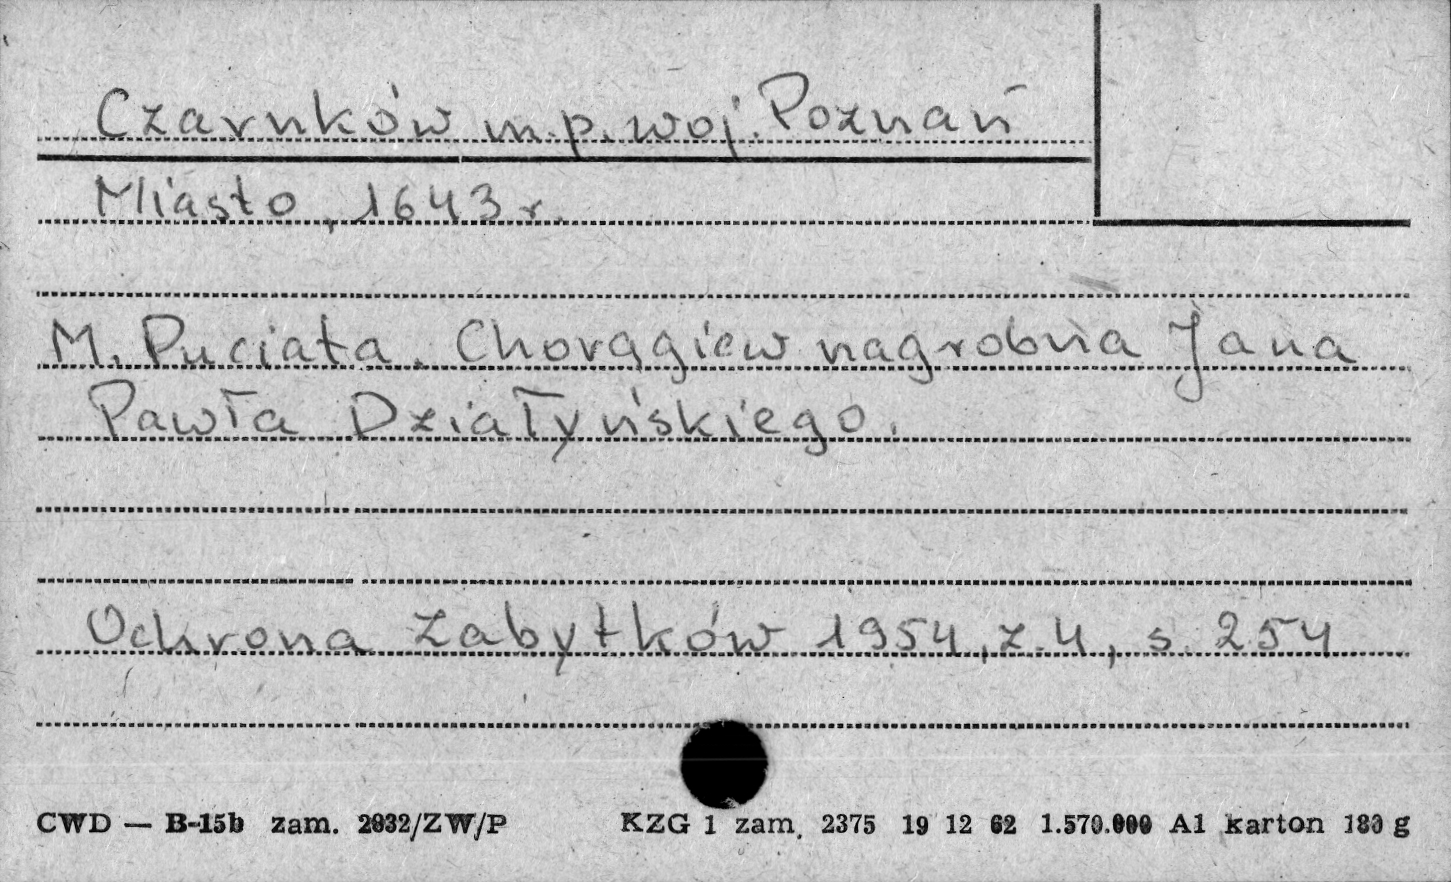 Czarnków m.p. woj. Poznań
Miasto, 1643 r.
M. Puciata. Chorągiew nagrobna Jana
Pawła Działyńskiego.
Ochrona Zabytków 1954, z. 4, s. 254
CWD — B-15b zam. 2032/ZW/P KZG 1 zam. 2375 19 12 62 1.570.000 A1 karton 180 g